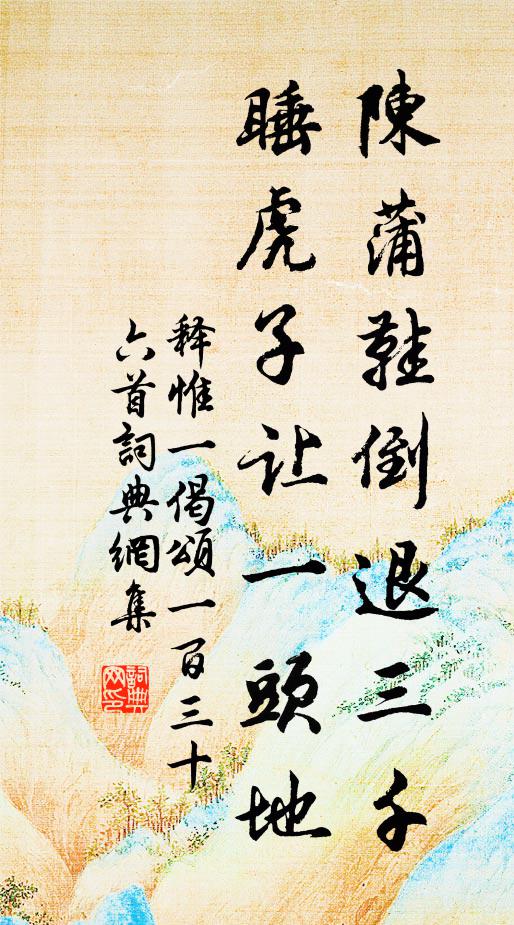 陳蒲鞋倒退三千
睡虎子让一頭地
释惟一偈頌一百三十
六首詞典網集
詞典
网印